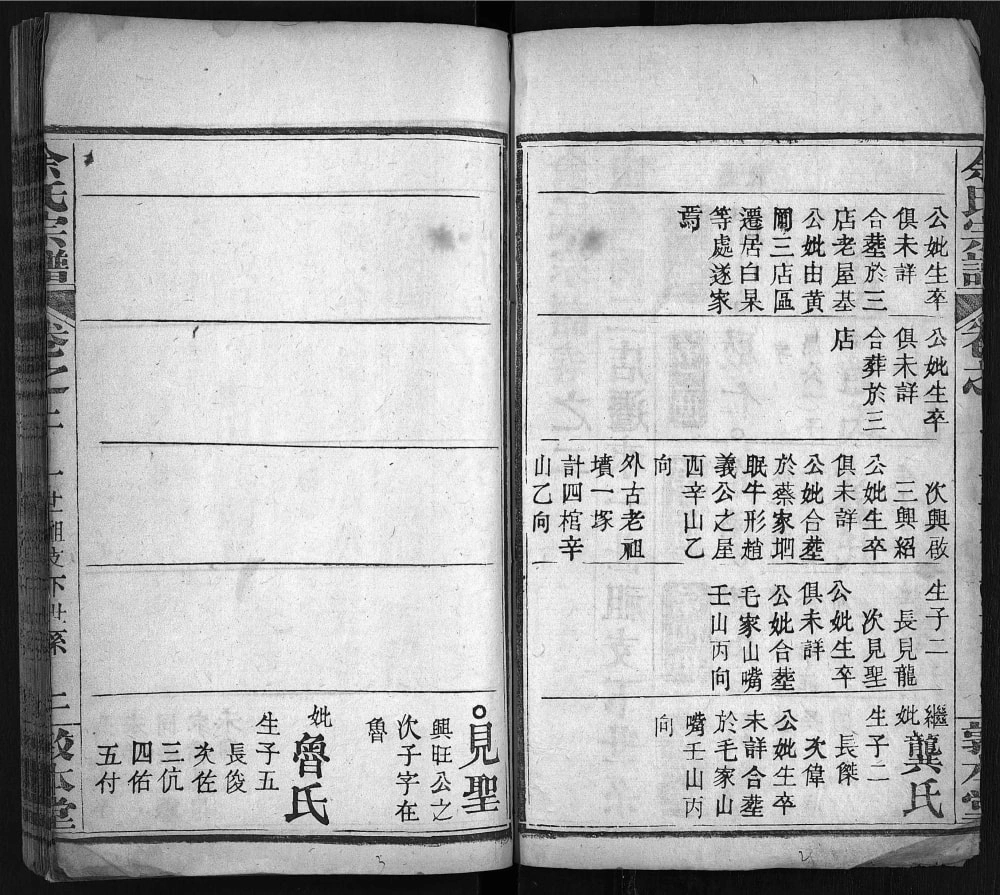 公妣生卒
俱未詳
合塟於三
店老屋基
公妣由黄
三店區
遷居白杲
等處遂家
焉
公妣生卒
俱未詳
合葬於三
店
次興啟
三興紹
公妣生卒
俱未詳
公妣合塟
於蔡家垇
眠牛形趙
義公之屋
西辛山乙
向
外古老祖
墳一塚
計四棺辛
山乙向
生子二
長見龍
次見聖
公妣生卒
俱未詳
公妣合塟
毛家山嘴
壬山丙向
繼
妣龔氏
生子二
長傑
次偉
公妣生卒
未詳合塟
於毛家山
嘴壬山丙
向
見聖
興旺公之
次子字在
魯
妣
魯氏
生子五
長俊
次佐
三伉
四佑
五付
余氏宗譜
卷之
世
下世系
敦本堂